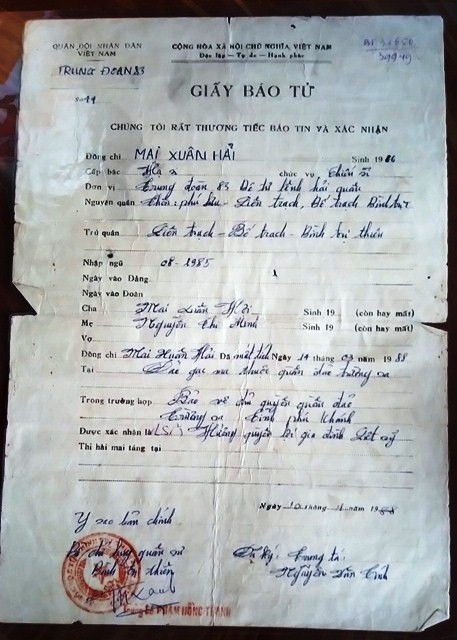 QUÂN ĐỘI NHÂN DÂN
VIỆT NAM
TRUNG ĐOÀN 83
Số 11
CỘNG HÒA XÃ HỘI CHỦ NGHĨA VIỆT NAM
Độc lập - Tự do - Hạnh phúc
GIẤY BÁO TỬ
CHÚNG TÔI RẤT THƯƠNG TIẾC BÁO TIN VÀ XÁC NHẬN
Đồng chí MAI XUÂN HẢI Sinh 19
Cấp bậc Hạ sĩ chức vụ chiến sĩ
Đơn vị Trung đoàn 83 Bộ tư lệnh hải quân
Nguyên quán Liên trạch, Bố trạch Bình trị
Trú quán Liên trạch - Bố trạch - Bình trị thiên
Nhập ngũ 08-1985
Ngày vào Đảng
Ngày vào Đoàn
Cha Mai Xuân Sinh 19 (còn hay mất)
Mẹ Nguyễn Thị Minh Sinh 19 (còn hay mất)
Vợ
Đồng chí Mai Xuân Hải Đã mất tích Ngày 14 tháng 03 năm 1988
Tại Đảo gạc ma thuộc quần đảo trường sa
Trong trường hợp Bảo vệ chủ quyền quần đảo
Trường sa Tỉnh phú khánh
Được xác nhận là LS Hưởng quyền lợi gia đình liệt sỹ
Thi hài mai táng tại
Ngày 10 tháng 11 năm 19
Y sao bản chính
Bộ chỉ huy quân sự
Bình trị thiên
Đã ký: Trung tá
Nguyễn Văn
PHẠM HỒNG THANH